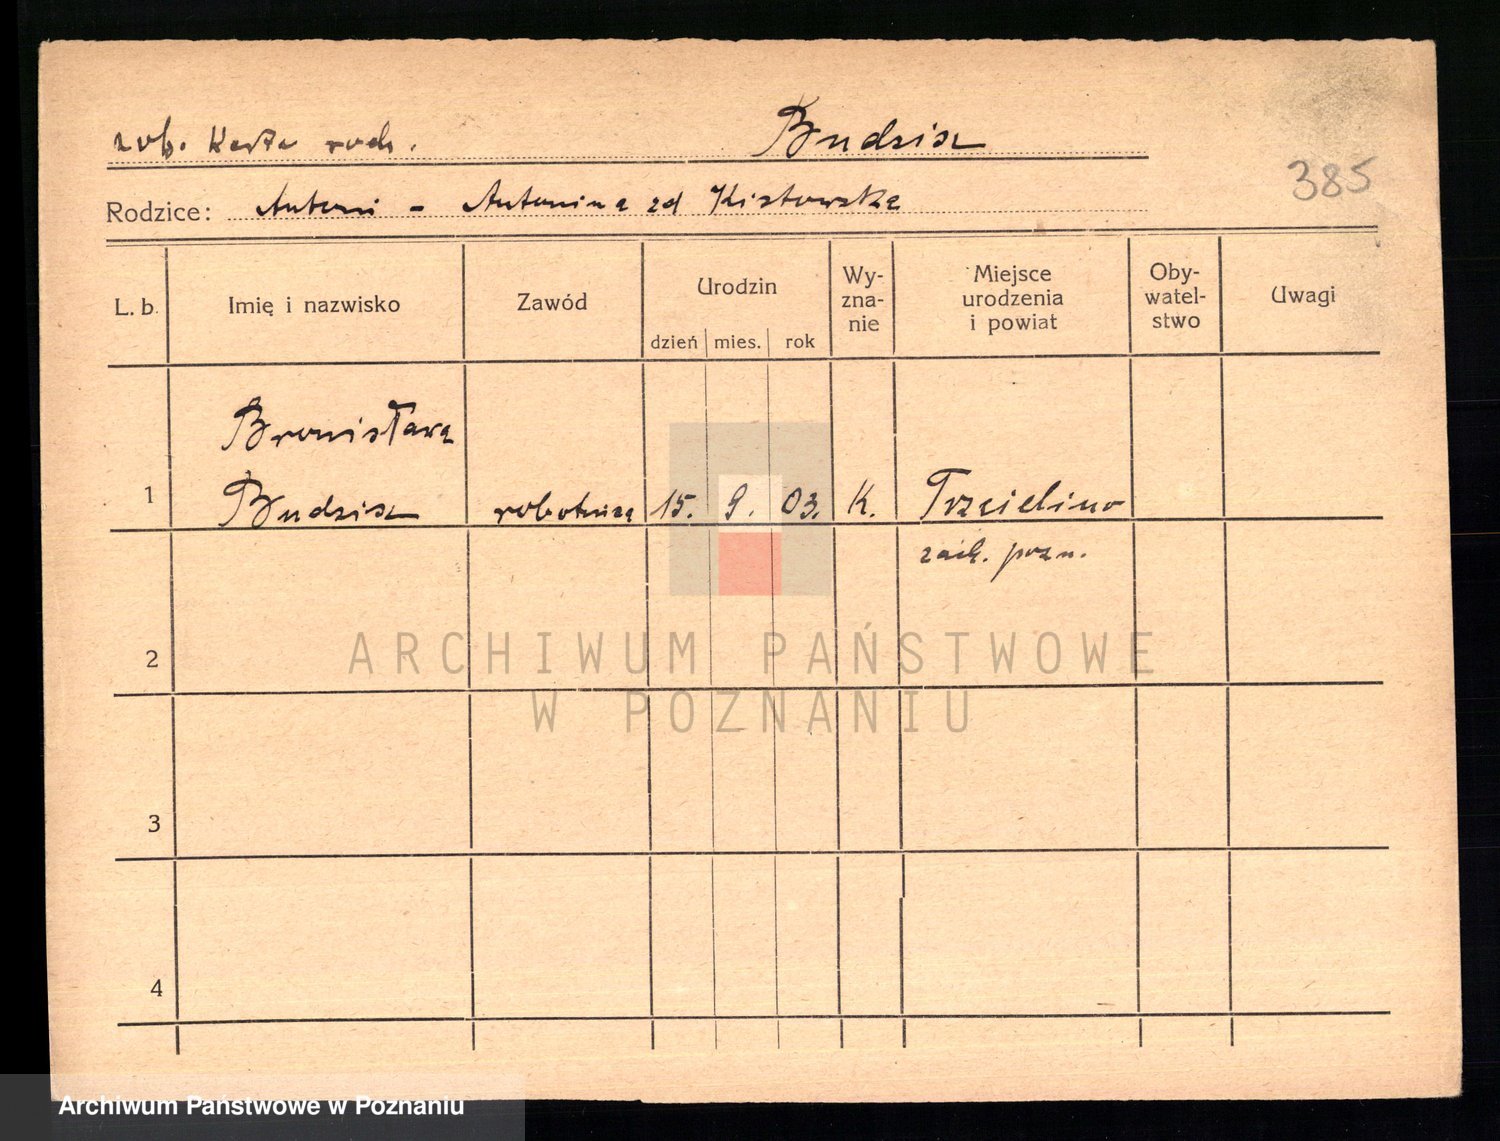 zob. Karta rodz. Budzisz
385
Rodzice: Antoni - Antonina zd Kistowska
L. b. Imię i nazwisko Zawód Urodzin Wy-zna-nie Miejsce urodzenia i powiat Oby-watel-stwo Uwagi
dzień mies. rok
Bronisława
1 Budzisz robotnica 15. 9. 03. K. Trzcielino
zach. pozn.
2
ARCHIWUM PAŃSTWOWE
W POZNANIU
3
4
Archiwum Państwowe w Poznaniu